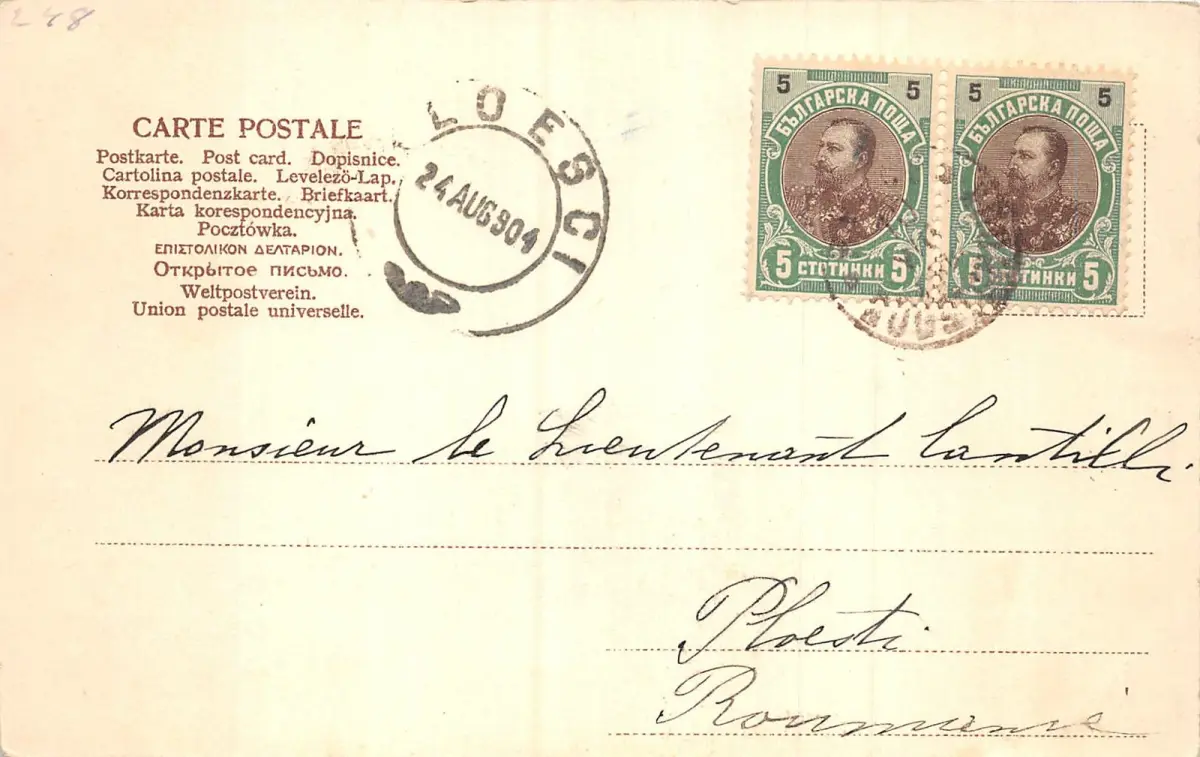 248
CARTE POSTALE
Postkarte. Post card. Dopisnice.
Cartolina postale. Levelező-Lap.
Korrespondenzkarte. Briefkaart.
Karta korespondencyjna.
Pocztówka.
ΕΠΙΣΤΟΛΙΚΟΝ ΔΕΛΤΑΡΙΟΝ.
Открытое письмо.
Weltpostverein.
Union postale universelle.
LOESCI
24 AUG 904
5 5
БЪЛГАРСКА ПОЩА
5 СТОТИНКИ 5
5 5
БЪЛГАРСКА ПОЩА
5 СТОТИНКИ 5
AUG
Monsieur le Lieutenant
Ploesti
Roumanie